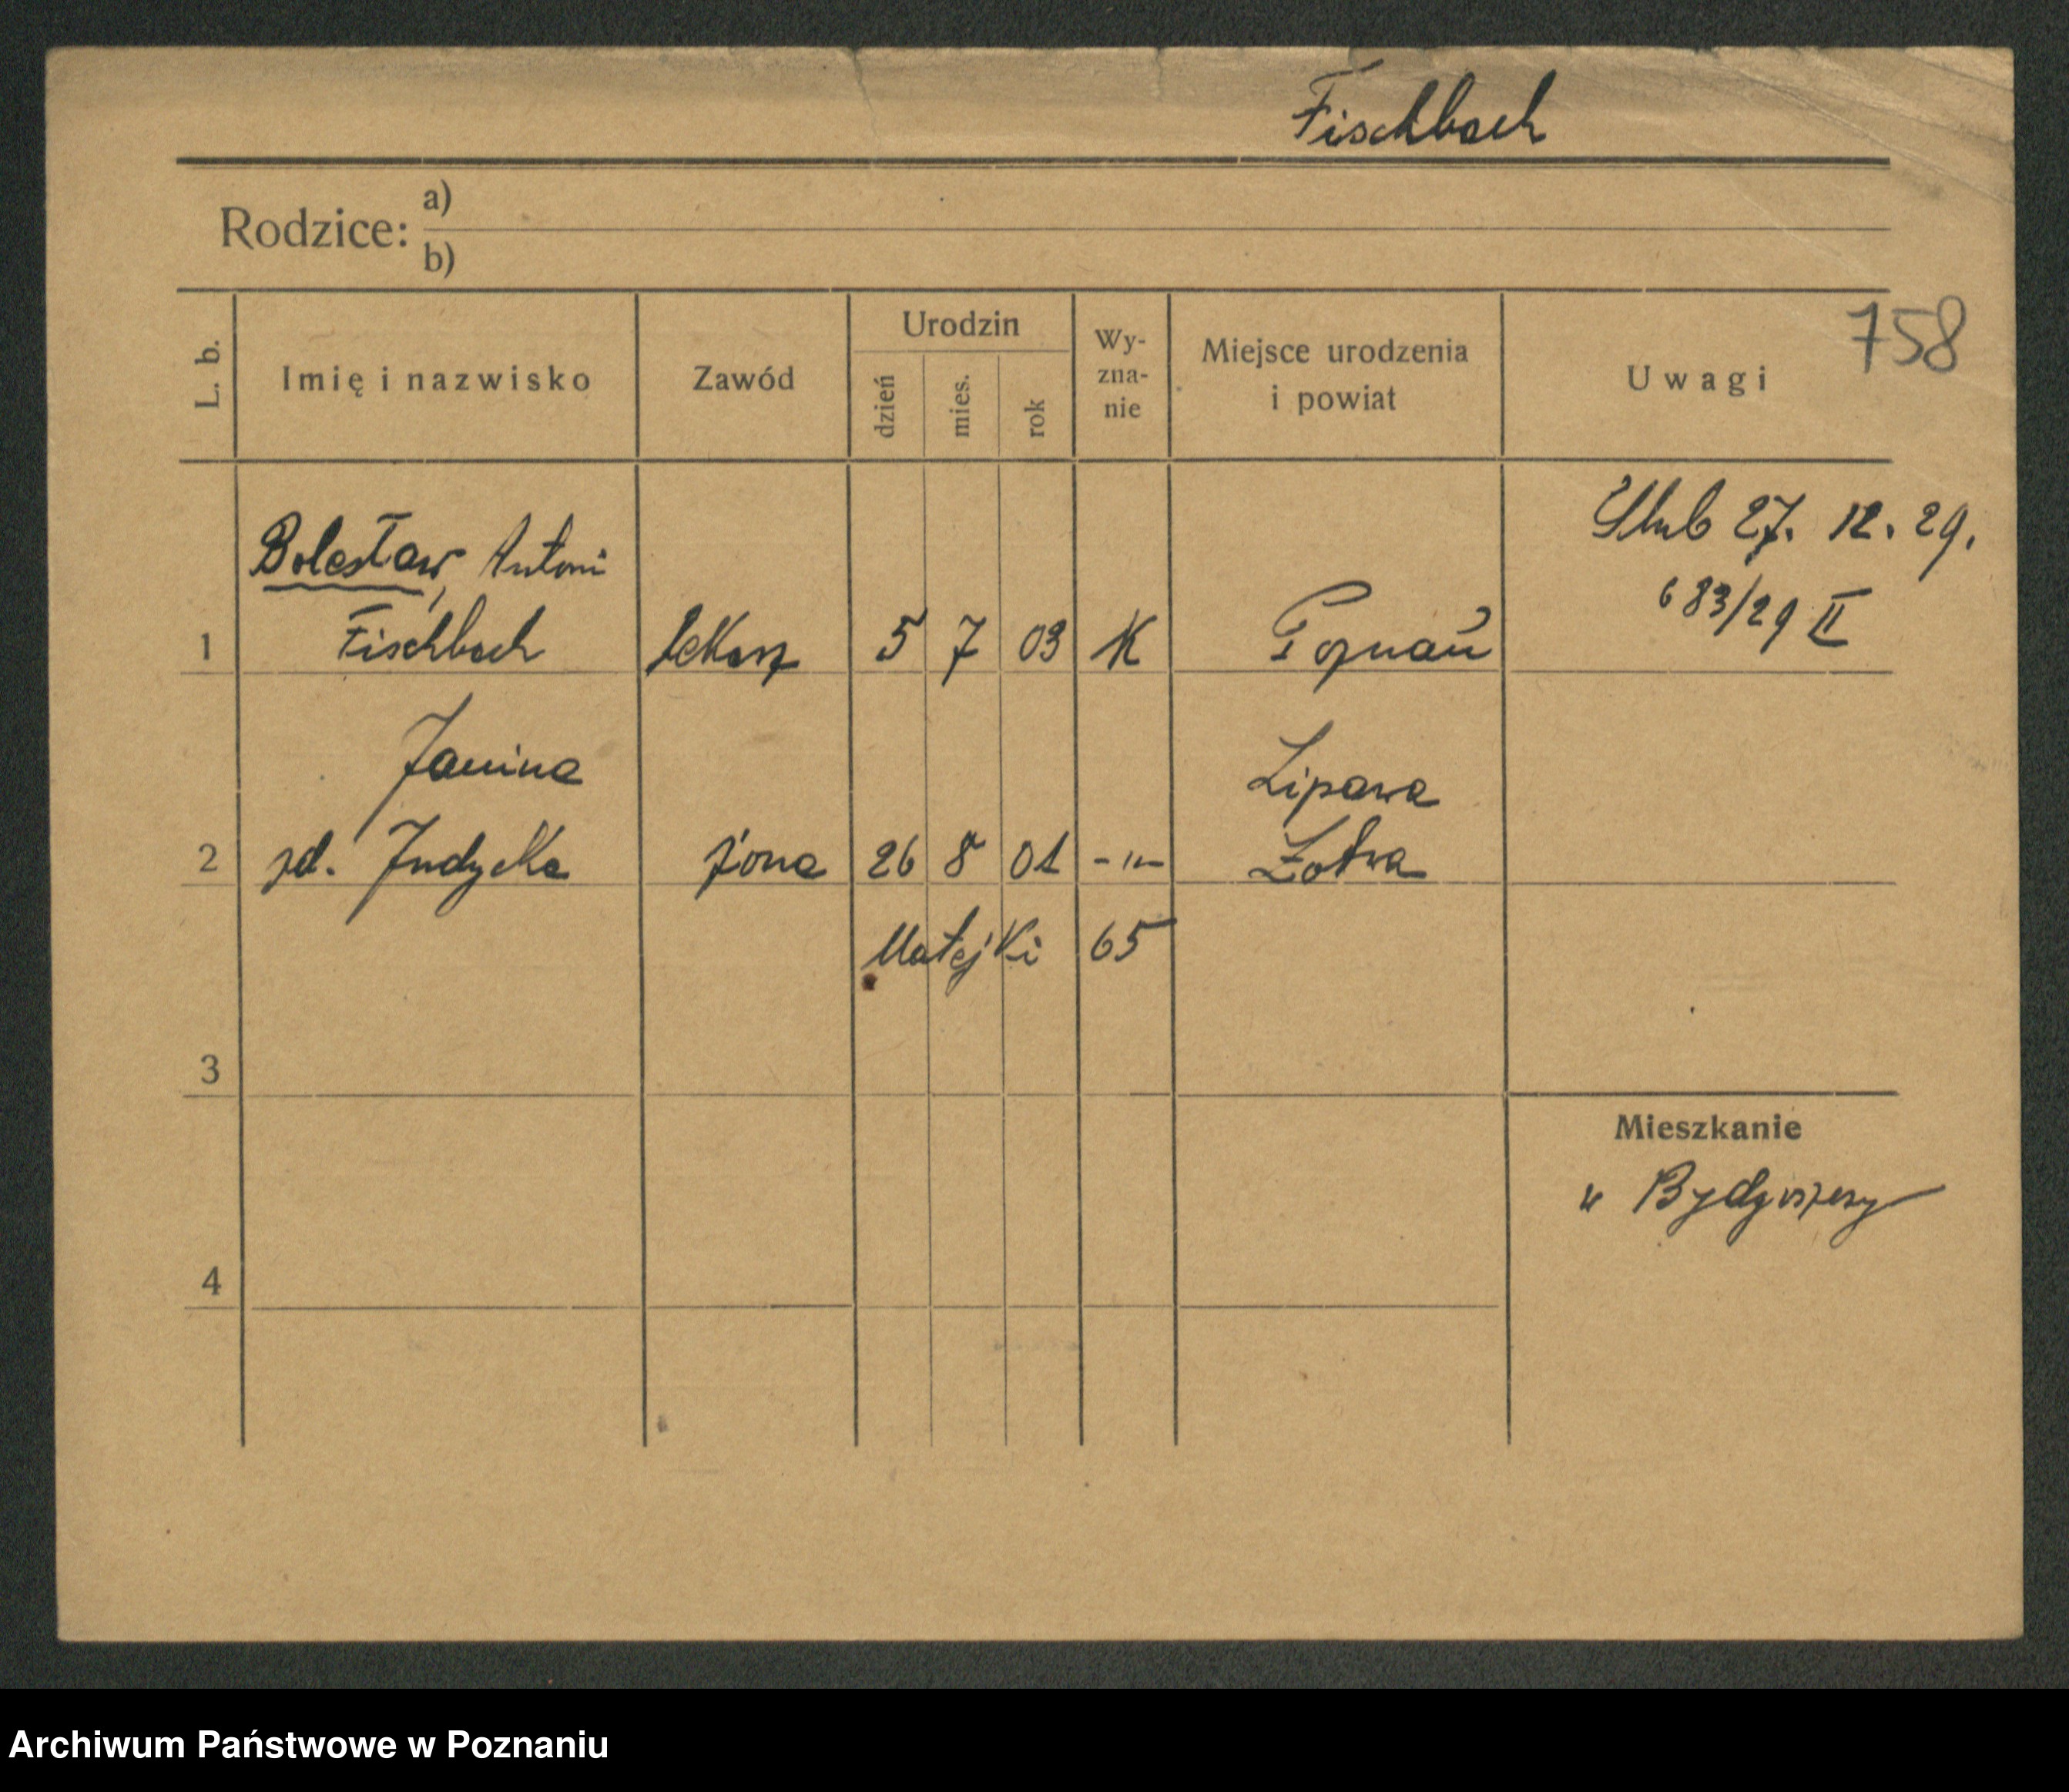 Fischbach
Rodzice: a)
b)
758
L. b. Imię i nazwisko Zawód Urodzin dzień mies. rok Wy-zna-nie Miejsce urodzenia i powiat Uwagi
Ślub 27. 12. 29.
683/29 II
Bolesław, Antoni
1 Fischbach lekarz 5 7 03 K Poznań
Janina Lipawa
2 zd. Indycka żona 26 8 01 -"- Łotwa
Matejki 65
3
Mieszkanie
w Bydgoszczy
4
Archiwum Państwowe w Poznaniu